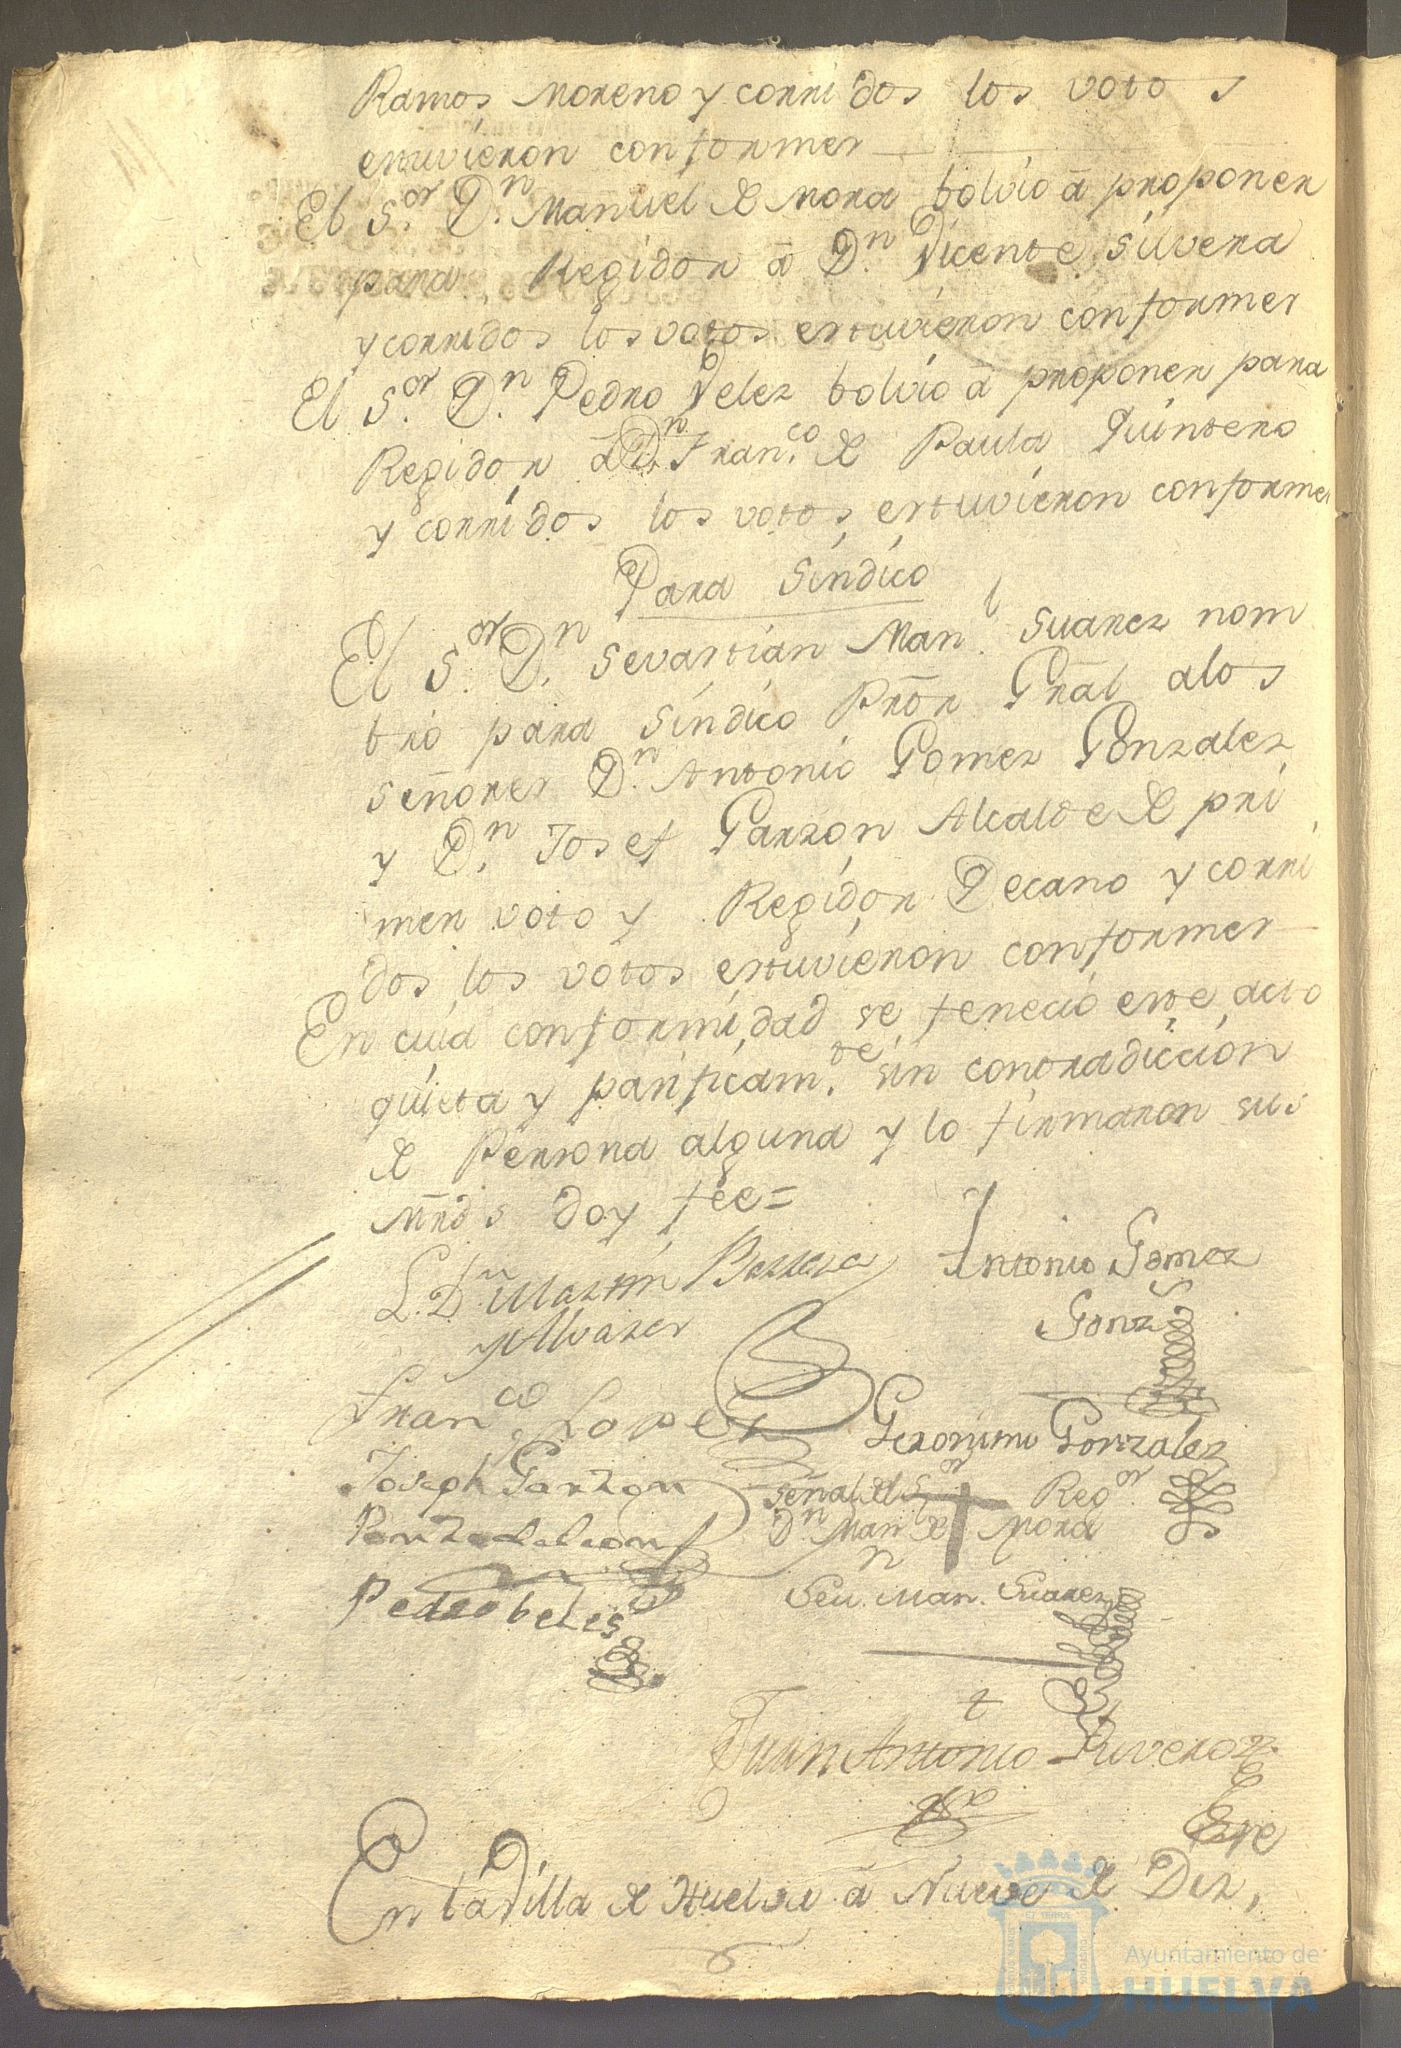 Ramos Moreno y corridos los votos
estuvieron conformes
El S.or D.n Manuel de Mora bolvio â proponer
para Regidor â D.n Vicente Silvera
y corridos los votos estuvieron conformes
El S.or D.n Pedro Velez bolvio â proponer para
Regidor â D.n Fran.co de Paula Quintero
y corridos los votos estuvieron conformes
Para Sindico
El S.or D.n Sevastian Man.l Suarez nom
bró para Sindico Prõr Grâl a los
señores D.n Antonio Gomez Gonzalez
y D.n Josef Garzon Alcalde de pri
mer voto y Regidor Decano y corri
dos los votos estuvieron conformes
En cuia conformidad se feneció este acto
quieta y pasificam.te sin contradiccion
de Persona alguna y lo firmaron sus
Mrds doy fee=
L. D.n Martin Barrera
y Alvarez
Antonio Gomez
Gonz
Fran.co Lopez
Geronimo Gonzalez
Joseph Garzon
Ponze de Leon
Señal del S.or Reg.or
D.n Man.l de Mora
Pedro beles
Sev.n Man. Suarez
Juan Antonio Rivero
En la Villa de Huelva â Nueve de Diz,
Ayuntamiento de
HUELVA